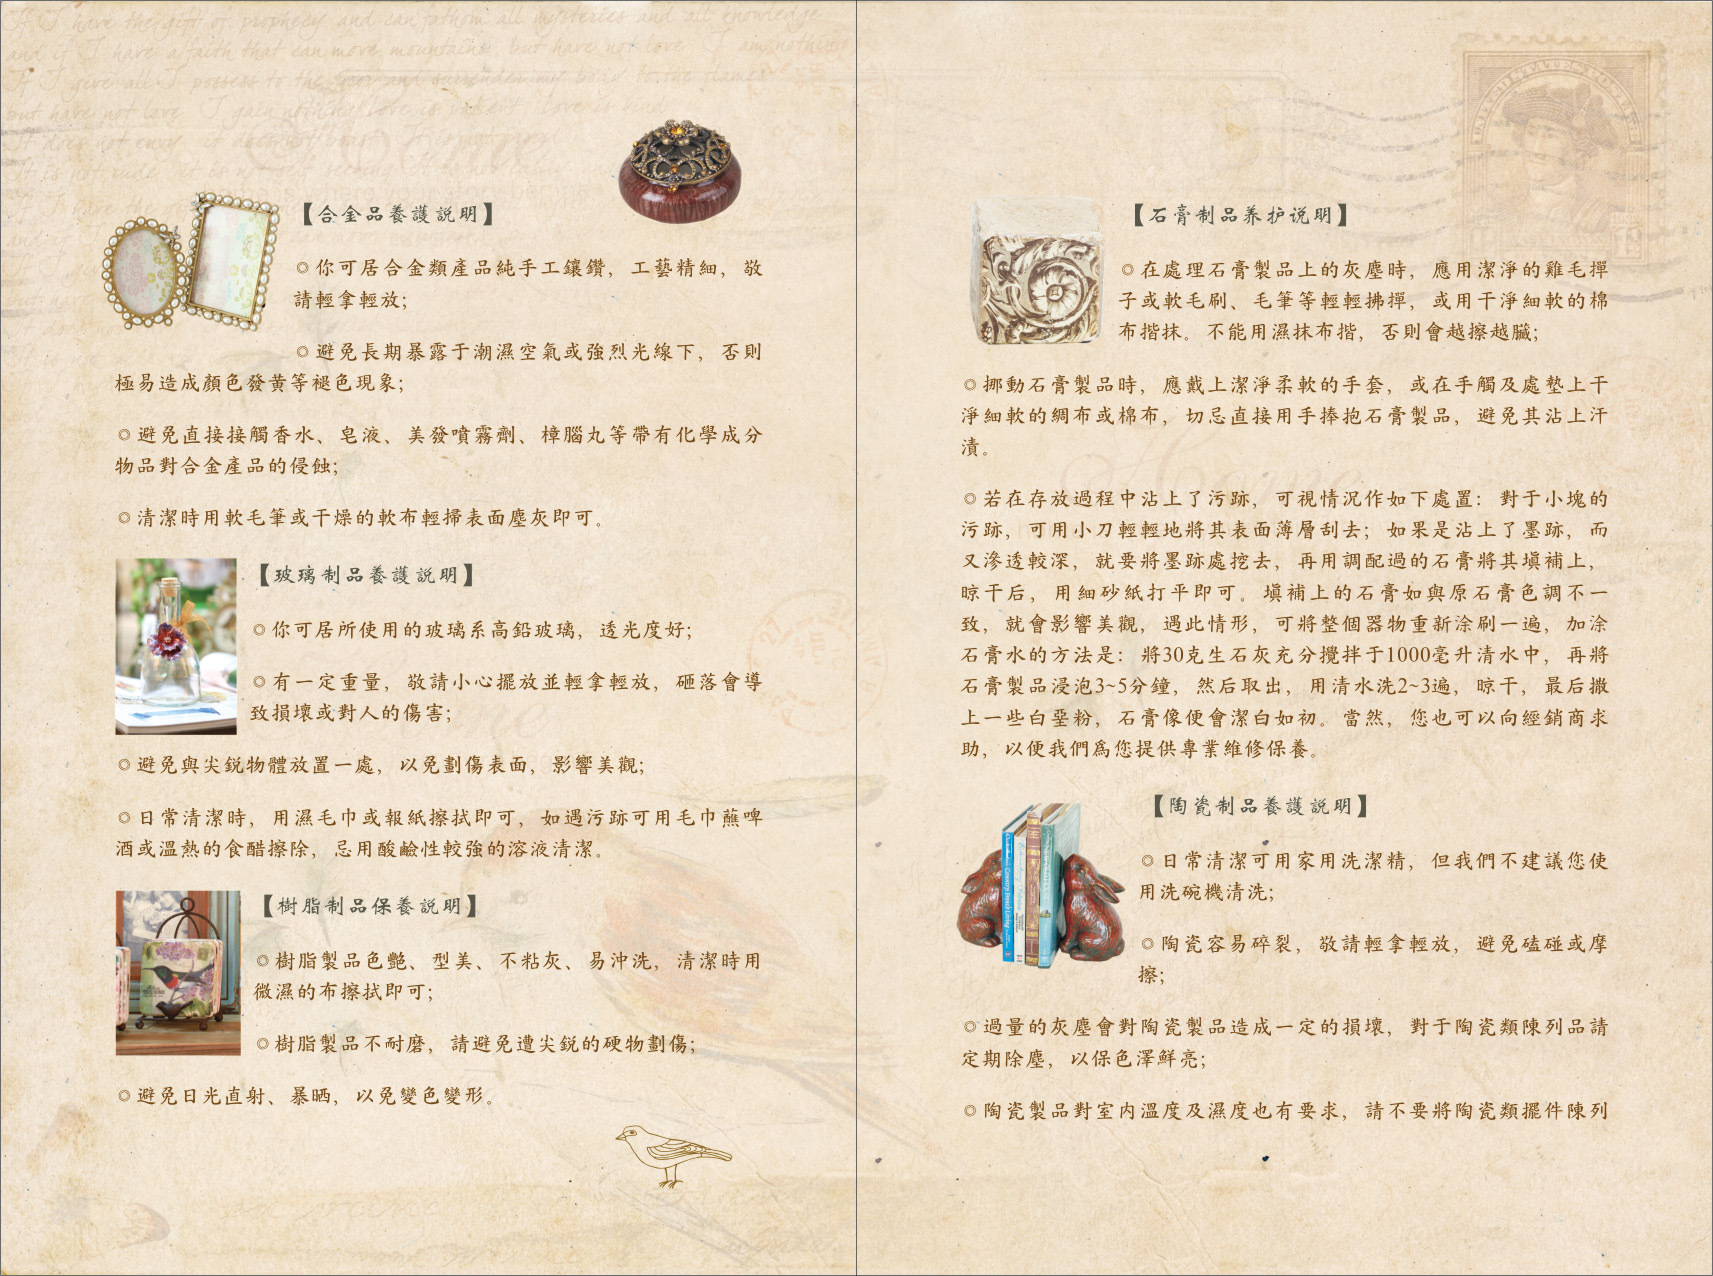 If I have the gift of prophecy and can fathom all mysteries and all knowledge
and if I have a faith that can move mountains but have not love I am nothing
If I give all I possess to the poor and surrender my body to the flames
but have not love I gain nothing
【合金品養護説明】
◎你可居合金類產品純手工鑲鑽，工藝精細，敬
請輕拿輕放；
◎避免長期暴露于潮濕空氣或強烈光線下，否則
極易造成顏色發黄等褪色現象；
◎避免直接接觸香水、皂液、美發噴霧劑、樟腦丸等帶有化學成分
物品對合金產品的侵蝕；
◎清潔時用軟毛筆或干燥的軟布輕掃表面塵灰即可。
【玻璃制品養護説明】
◎你可居所使用的玻璃系高鉛玻璃，透光度好；
◎有一定重量，敬請小心擺放並輕拿輕放，砸落會導
致損壞或對人的傷害；
◎避免與尖鋭物體放置一處，以免劃傷表面，影響美觀；
◎日常清潔時，用濕毛巾或報紙擦拭即可，如遇污跡可用毛巾蘸啤
酒或溫熱的食醋擦除，忌用酸鹼性較強的溶液清潔。
【樹脂制品保養説明】
◎樹脂製品色艷、型美、不粘灰、易沖洗，清潔時用
微濕的布擦拭即可；
◎樹脂製品不耐磨，請避免遭尖鋭的硬物劃傷；
◎避免日光直射、暴晒，以免變色變形。
【石膏制品养护说明】
◎在處理石膏製品上的灰塵時，應用潔淨的雞毛撣
子或軟毛刷、毛筆等輕輕拂撣，或用干淨細軟的棉
布揩抹。不能用濕抹布揩，否則會越擦越臟；
◎挪動石膏製品時，應戴上潔淨柔軟的手套，或在手觸及處墊上干
淨細軟的綢布或棉布，切忌直接用手捧抱石膏製品，避免其沾上汗
漬。
◎若在存放過程中沾上了污跡，可視情況作如下處置：對于小塊的
污跡，可用小刀輕輕地將其表面薄層刮去；如果是沾上了墨跡，而
又滲透較深，就要將墨跡處挖去，再用調配過的石膏將其填補上，
晾干后，用細砂紙打平即可。填補上的石膏如與原石膏色調不一
致，就會影響美觀，遇此情形，可將整個器物重新涂刷一遍，加涂
石膏水的方法是：將30克生石灰充分攪拌于1000毫升清水中，再將
石膏製品浸泡3~5分鐘，然后取出，用清水洗2~3遍，晾干，最后撒
上一些白堊粉，石膏像便會潔白如初。當然，您也可以向經銷商求
助，以便我們爲您提供專業維修保養。
【陶瓷制品養護説明】
◎日常清潔可用家用洗潔精，但我們不建議您使
用洗碗機清洗；
◎陶瓷容易碎裂，敬請輕拿輕放，避免磕碰或摩
擦；
◎過量的灰塵會對陶瓷製品造成一定的損壞，對于陶瓷類陳列品請
定期除塵，以保色澤鮮亮；
◎陶瓷製品對室内溫度及濕度也有要求，請不要將陶瓷類擺件陳列